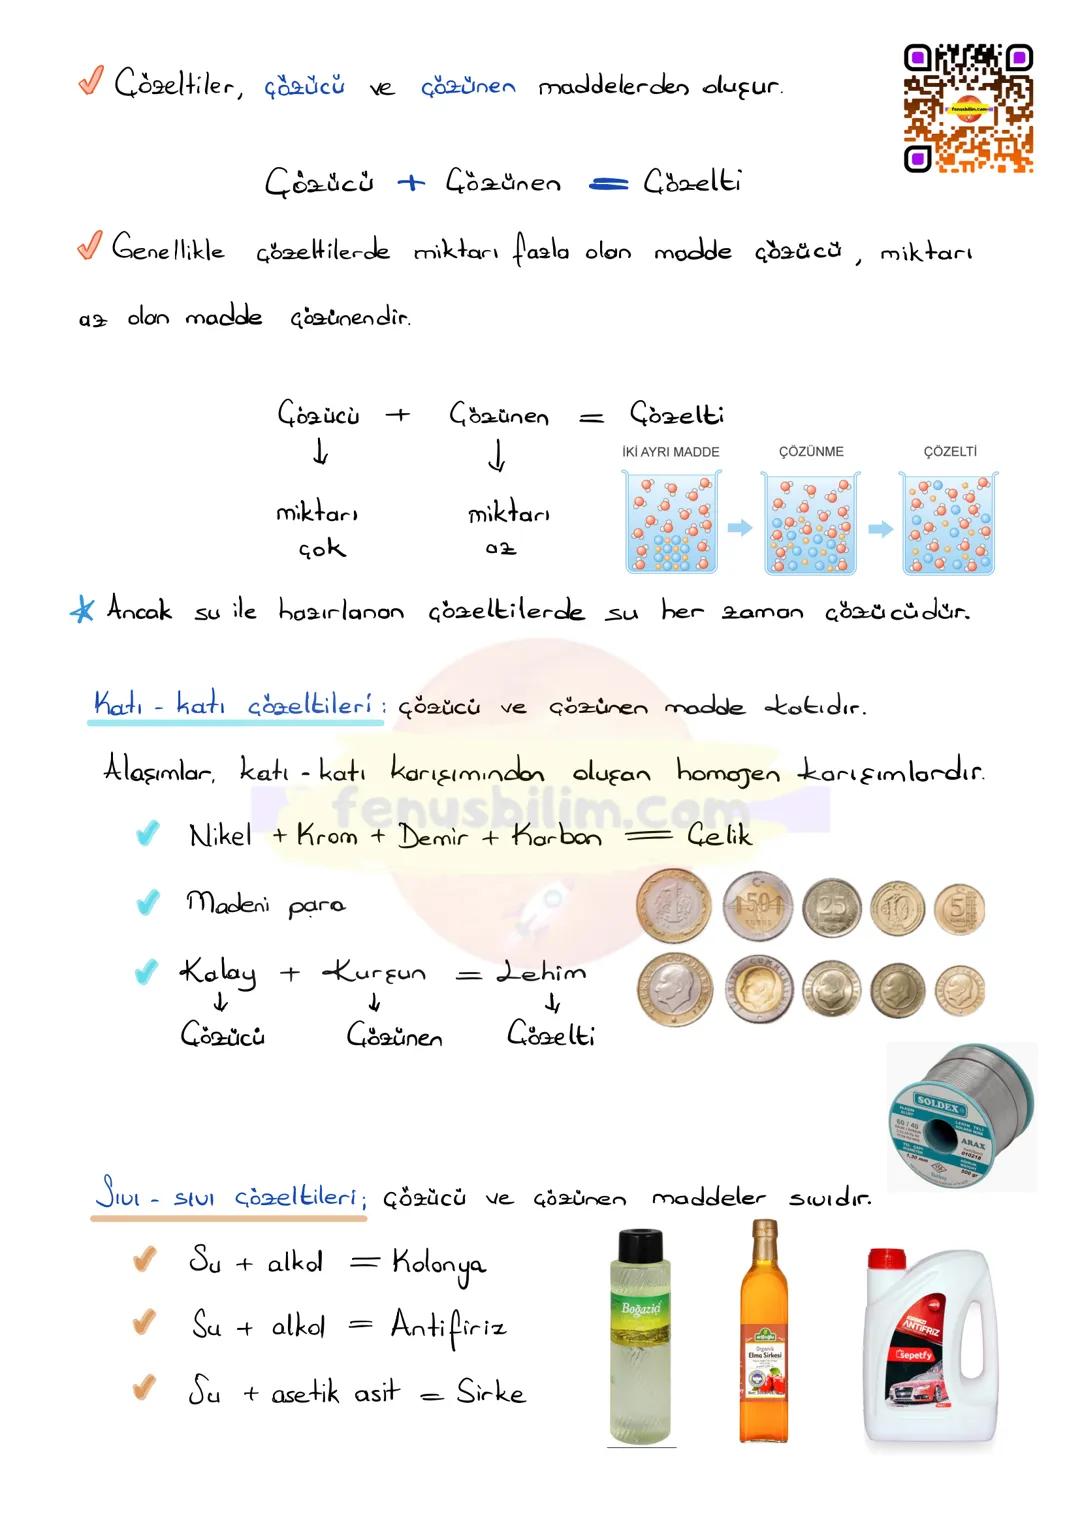 Çözeltiler, çözücü ve çözünen maddelerden oluşur.
fenusbilim.com
Çözücü + Çözünen = Çözelti
Genellikle çözeltilerde miktarı fazla olan madde çözücü, miktarı
az olan madde çözünendir.
Çözücü + Çözünen = Çözelti
↓ ↓
miktarı miktarı
çok az
İKİ AYRI MADDE ÇÖZÜNME ÇÖZELTİ
Ancak su ile hazırlanan çözeltilerde su her zaman çözücüdür.
Katı - katı çözeltileri: çözücü ve çözünen madde katıdır.
Alaşımlar, katı - katı karışımından oluşan homojen karışımlardır.
fenusbilim.com
Nikel + Krom + Demir + Karbon = Çelik
Madeni para
50 25 10 5
Kalay + Kurşun = Lehim
↓ ↓ ↓
Çözücü Çözünen Çözelti
SOLDEX
60 / 40
ARAX
010218
1,20 mm
500 gr
Sıvı - sıvı çözeltileri; çözücü ve çözünen maddeler sıvıdır.
Su + alkol = Kolonya
Su + alkol = Antifiriz
Su + asetik asit = Sirke
Boğaziçi
Organik
Elma Sirkesi
ANTİFRİZ
sepetfy